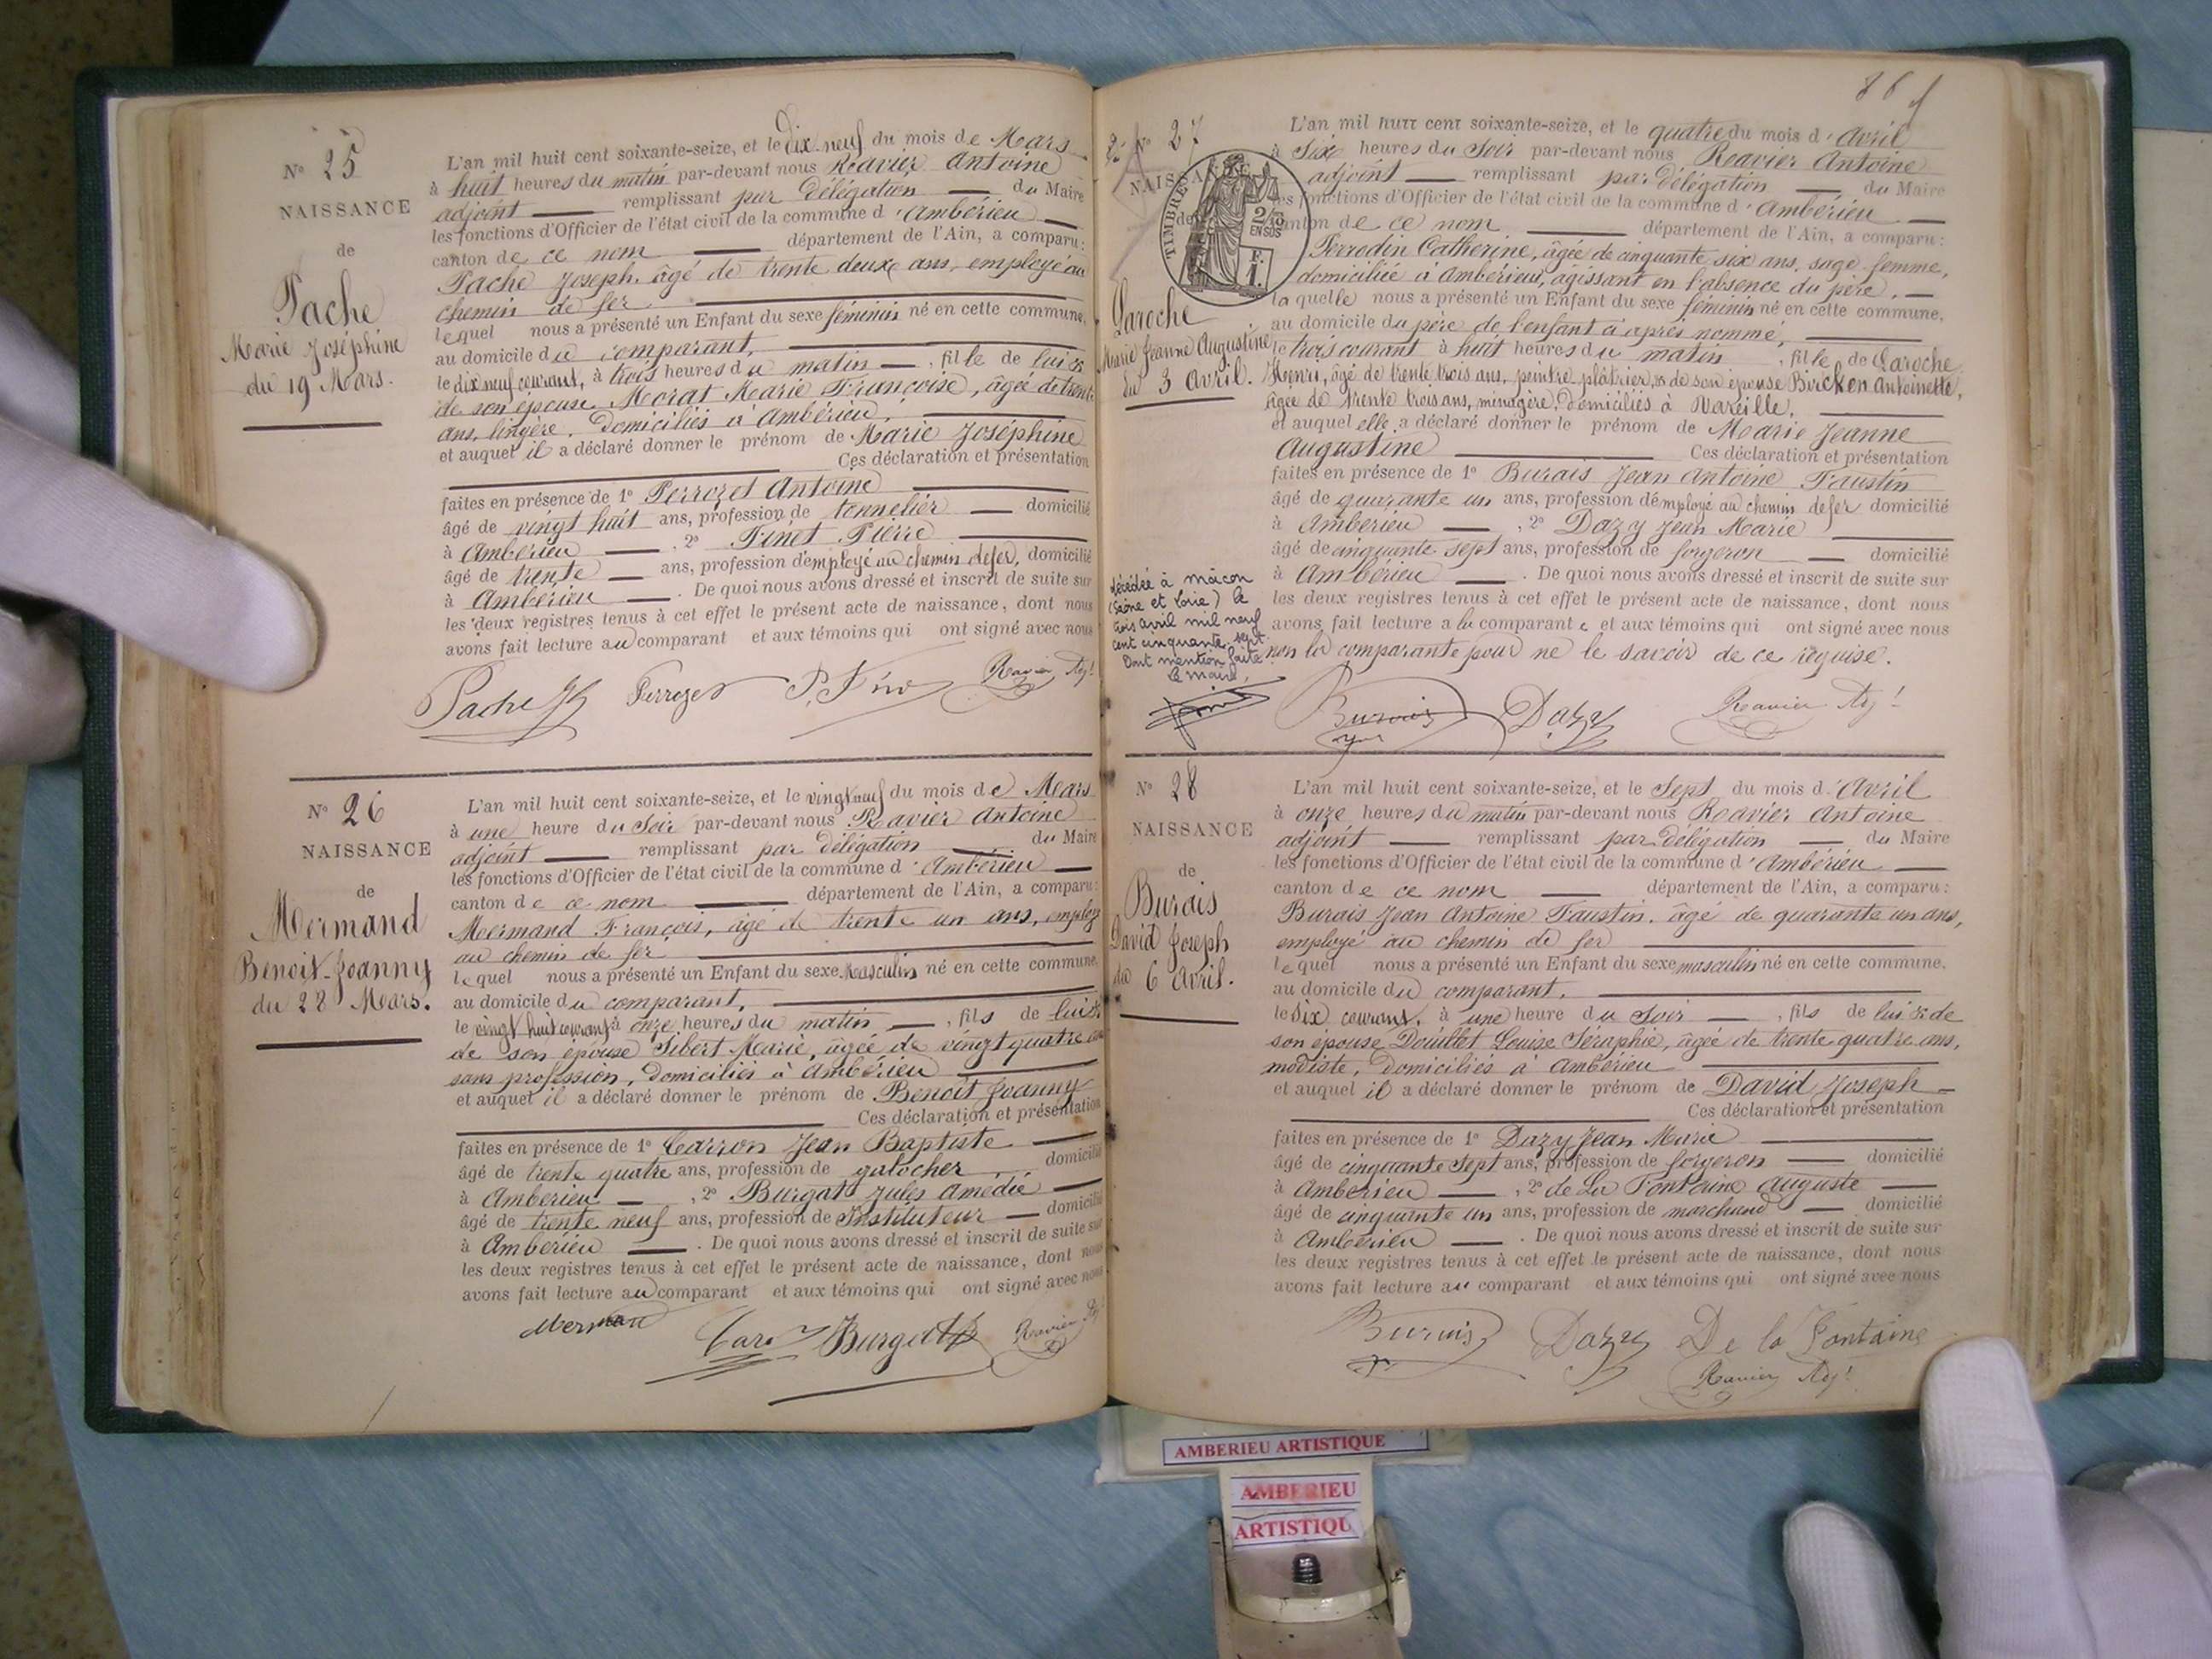 N° 25
NAISSANCE
de
Pache
Marie Joséphine
du 19 Mars.
L'an mil huit cent soixante-seize, et le Dix neuf du mois de Mars
à huit heures du matin par-devant nous Ravier Antoine
adjoint remplissant par délégation du Maire
les fonctions d'Officier de l'état civil de la commune d'Ambérieu
canton de ce nom département de l'Ain, a comparu:
Pache Joseph, âgé de trente deux ans, employé au
chemin de fer
lequel nous a présenté un Enfant du sexe féminin né en cette commune,
au domicile du comparant,
le dix neuf courant, à trois heures du matin, fille de lui &
de son épouse Morat Marie Françoise, âgée de trente
ans, lingère, domiciliés à Ambérieu,
et auquel il a déclaré donner le prénom de Marie Joséphine
Ces déclaration et présentation
faites en présence de 1° Perrozet Antoine
âgé de vingt huit ans, profession de tonnelier domicilié
à Ambérieu, 2° Finet Pierre
âgé de trente ans, profession d'employé au chemin de fer, domicilié
à Ambérieu. De quoi nous avons dressé et inscrit de suite sur
les deux registres tenus à cet effet le présent acte de naissance, dont nous
avons fait lecture au comparant et aux témoins qui ont signé avec nous
Pache Perrozet Ravier Adj!
N° 26
NAISSANCE
de
Mermand
Benoit-Joanny
du 28 Mars.
L'an mil huit cent soixante-seize, et le vingt neuf du mois de Mars
à une heure du Soir par-devant nous Ravier Antoine
adjoint remplissant par délégation du Maire
les fonctions d'Officier de l'état civil de la commune d'Ambérieu
canton de ce nom département de l'Ain, a comparu:
Mermand François, âgé de trente un ans, employé
au chemin de fer
lequel nous a présenté un Enfant du sexe Masculin né en cette commune,
au domicile du comparant,
le vingt huit courant à onze heures du matin, fils de lui &
de son épouse Sibert Marie, âgée de vingt quatre ans
sans profession, domiciliés à Ambérieu
et auquel il a déclaré donner le prénom de Benoît Joanny
Ces déclaration et présentation
faites en présence de 1° Carron Jean Baptiste
âgé de trente quatre ans, profession de galocher, domicilié
à Ambérieu, 2° Burgat Jules Amédié
âgé de trente neuf ans, profession de Instituteur domicilié
à Ambérieu. De quoi nous avons dressé et inscrit de suite sur
les deux registres tenus à cet effet le présent acte de naissance, dont nous
avons fait lecture au comparant et aux témoins qui ont signé avec nous
Mermand Burgat Ravier
86
N° 27
NAISSANCE
de
TIMBRE
2/10
EN SUS
F.
1.
Laroche
Marie Jeanne Augustine
du 3 Avril.
L'an mil huit cent soixante-seize, et le quatre du mois d'Avril
à Six heures du Soir par-devant nous Ravier Antoine
adjoint remplissant par délégation du Maire
les fonctions d'Officier de l'état civil de la commune d'Ambérieu
canton de ce nom département de l'Ain, a comparu:
Perrodin Catherine, âgée de cinquante six ans, sage femme,
domiciliée à Ambérieu, agissant en l'absence du père,
laquelle nous a présenté un Enfant du sexe féminin né en cette commune,
au domicile du père de l'enfant ci après nommé,
le trois courant à huit heures du matin, fille de Laroche
Henri, âgé de trente trois ans, peintre plâtrier, & de son épouse Bircken Antoinette,
âgée de trente trois ans, ménagère, domiciliés à Vareille,
et auquel elle a déclaré donner le prénom de Marie Jeanne
Augustine Ces déclaration et présentation
faites en présence de 1° Burais Jean Antoine Faustin
âgé de quarante un ans, profession d'employé au chemin de fer domicilié
à Ambérieu, 2° Dazy Jean Marie
âgé de cinquante sept ans, profession de forgeron domicilié
à Ambérieu. De quoi nous avons dressé et inscrit de suite sur
les deux registres tenus à cet effet le présent acte de naissance, dont nous
avons fait lecture a la comparante et aux témoins qui ont signé avec nous
non la comparante pour ne le savoir de ce requise.
décédée à Mâcon
(Saône et Loire) le
trois avril mil neuf
cent cinquante sept
Dont mention faite
Le Maire,
Burais Dazy Ravier Adj!
N° 28
NAISSANCE
de
Burais
David Joseph
du 6 Avril.
L'an mil huit cent soixante-seize, et le Sept du mois d'Avril
à onze heures du matin par-devant nous Ravier Antoine
adjoint remplissant par délégation du Maire
les fonctions d'Officier de l'état civil de la commune d'Ambérieu
canton de ce nom département de l'Ain, a comparu:
Burais Jean Antoine Faustin, âgé de quarante un ans,
employé au chemin de fer
lequel nous a présenté un Enfant du sexe masculin né en cette commune,
au domicile du comparant,
le Six courant, à une heure du Soir, fils de lui & de
son épouse Douillet Louise Séraphie, âgée de trente quatre ans,
modiste, domiciliés à Ambérieu
et auquel il a déclaré donner le prénom de David Joseph
Ces déclaration et présentation
faites en présence de 1° Dazy Jean Marie
âgé de cinquante Sept ans, profession de forgeron domicilié
à Ambérieu, 2° de La Fontaine Auguste
âgé de cinquante un ans, profession de marchand domicilié
à Ambérieu. De quoi nous avons dressé et inscrit de suite sur
les deux registres tenus à cet effet le présent acte de naissance, dont nous
avons fait lecture au comparant et aux témoins qui ont signé avec nous
Burais Dazy De la Fontaine
Ravier Adj!
AMBERIEU ARTISTIQUE
AMBERIEU
ARTISTIQU